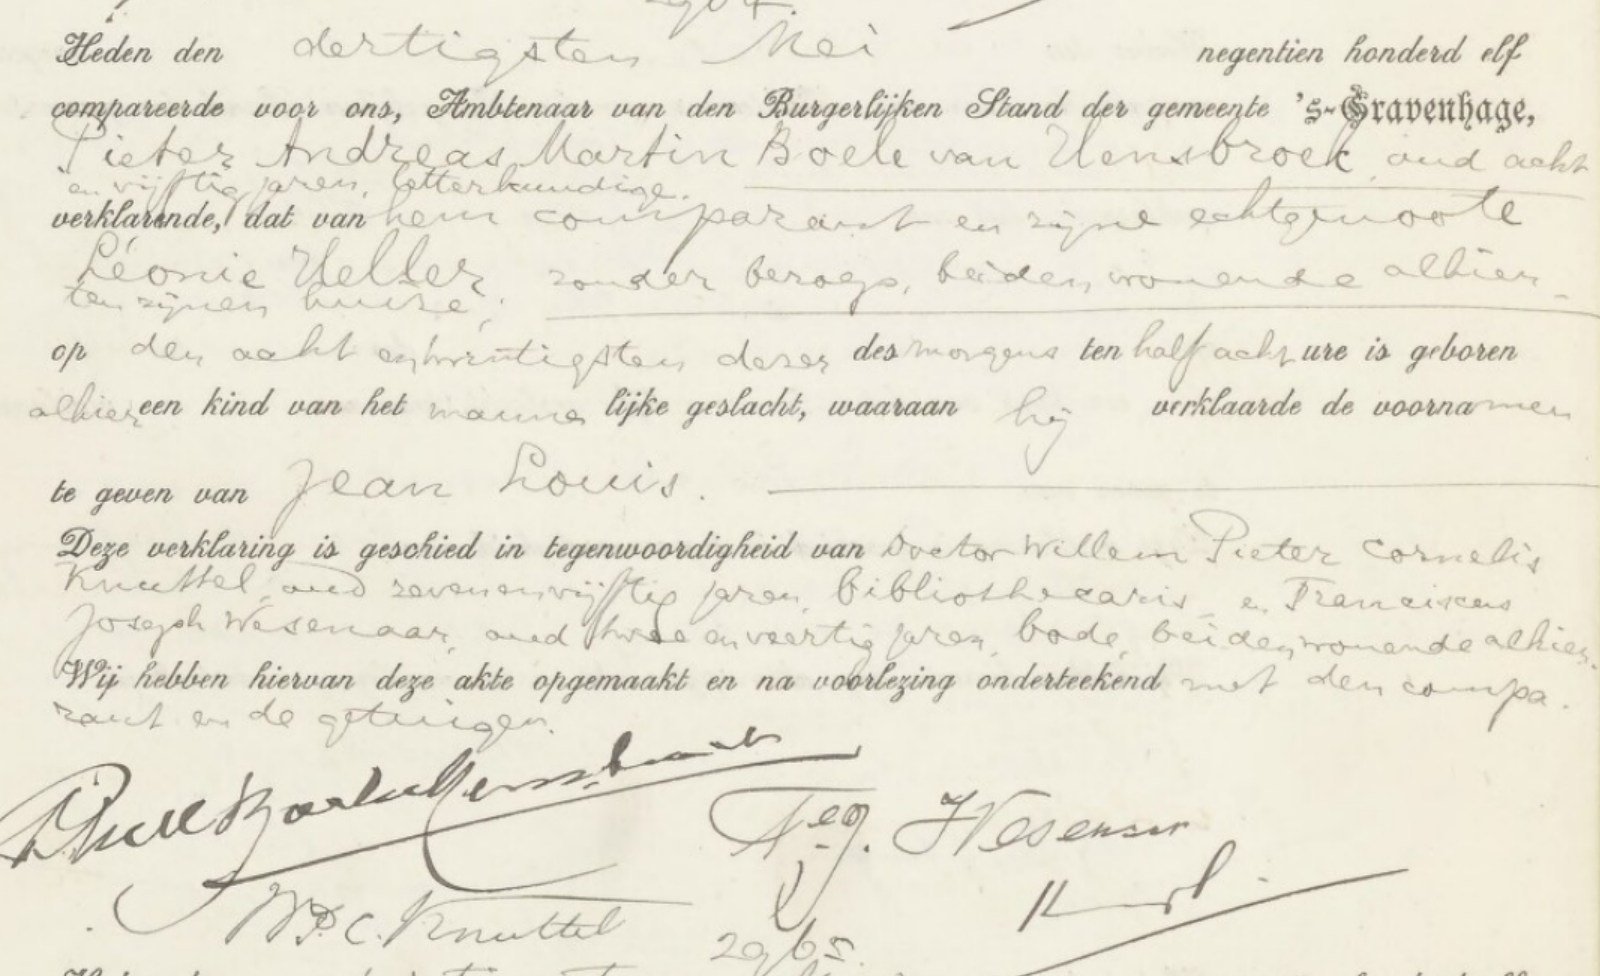 2904.
Heden den dertigsten Mei negentien honderd elf
compareerde voor ons, Ambtenaar van den Burgerlijken Stand der gemeente 's-Gravenhage,
Pieter Andreas Martin Boele van Hensbroek, oud acht
en vijftig jaren, letterkundige.
verklarende, dat van hem comparant en zijne echtgenoote
Léonie Heller, zonder beroep, beiden wonende alhier
ten zijnen huize,
op den acht en twintigsten dezer des morgens ten half acht ure is geboren
alhier een kind van het mannelijke geslacht, waaraan hij verklaarde de voornamen
te geven van Jean Louis.
Deze verklaring is geschied in tegenwoordigheid van Doctor Willem Pieter Cornelis
Knuttel, oud zevenenvijftig jaren, bibliothecaris, en Franciscus
Joseph Wesenaar, oud twee en veertig jaren, bode, beiden wonende alhier.
Wij hebben hiervan deze akte opgemaakt en na voorlezing onderteekend met den compa-
rant en de getuigen.
Boele van Hensbroek
Wesenaar
W.P.C. Knuttel
2905.